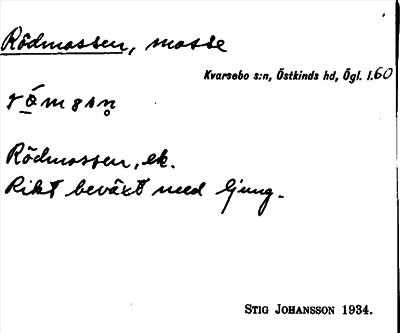 Rödmossen, mosse
Kvarsebo s:n, Östkinds hd, Ögl. l.60
Rödmossen, ek.
Rikt beväxt med ljung.
STIG JOHANSSON 1934.